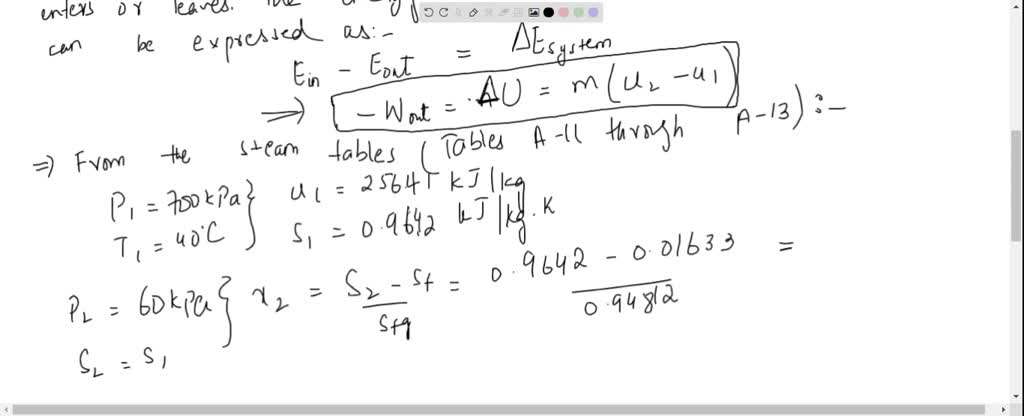 enters or leaves. The
can be expressed as:-
Ein - Eout = ΔEsystem
⇒ -Wout = ΔU = m(u2 - u1)
⇒ From the steam tables (Tables A-11 through A-13) :-
P1 = 700kPa } u1 = 25641 kJ/kg
T1 = 40°C } S1 = 0.9642 kJ/kg.K
P2 = 60kPa } x2 = S2 - Sf / Sfg = 0.9642 - 0.01633 / 0.94812 =
S2 = S1